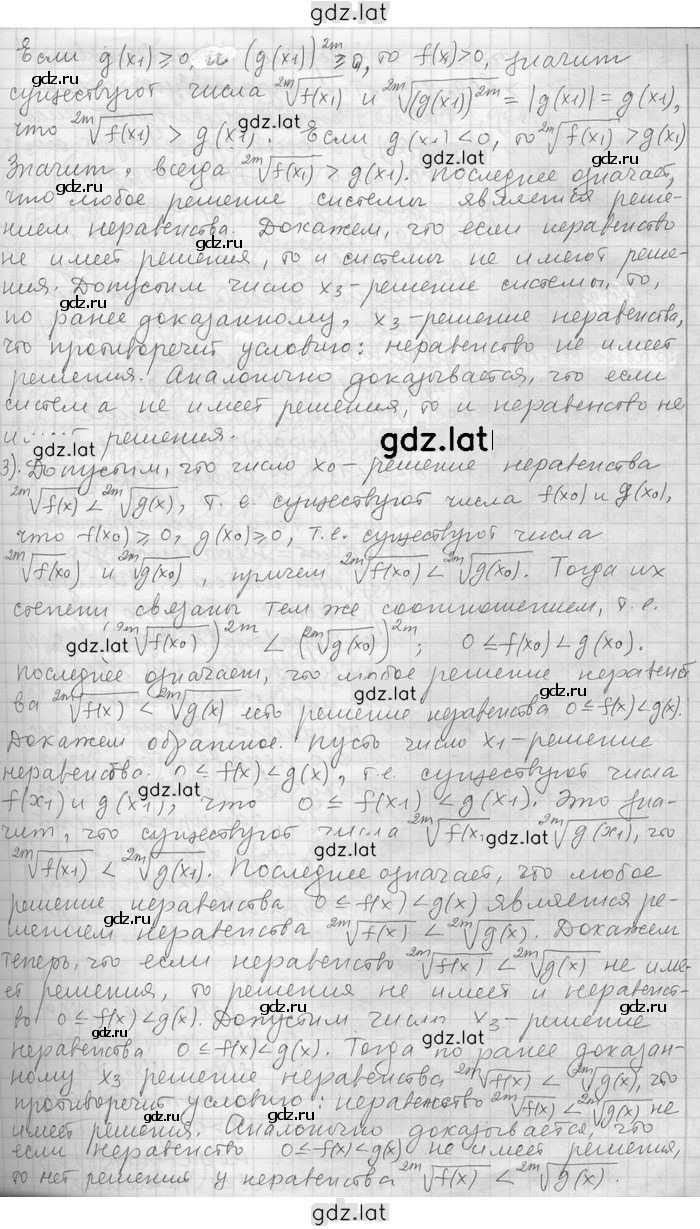 gdz.lat
Если g(x₁) ≥ 0, и (g(x₁))²ᵐ ≥ 0, то f(x) > 0, значит
существуют числа ²ᵐ√f(x₁) и ²ᵐ√(g(x₁))²ᵐ = |g(x₁)| = g(x₁),
что ²ᵐ√f(x₁) > g(x₁). Если g(x₁) < 0, то ²ᵐ√f(x₁) > g(x₁)
Значит, всегда ²ᵐ√f(x₁) > g(x₁). Последнее означает,
что любое решение системы является реше-
нием неравенства. Докажем, что если неравенство
не имеет решения, то и системы не имеют реше-
ния. Допустим число x₃ - решение системы, то,
по ранее доказанному, x₃ - решение неравенства,
что противоречит условию: неравенство не имеет
решения. Аналогично доказывается, что если
система не имеет решения, то и неравенство не
решения.
gdz.lat
3). Допустим, что число x₀ - решение неравенства
²ᵐ√f(x) < ²ᵐ√g(x), т.е. существуют числа f(x₀) и g(x₀),
что f(x₀) ≥ 0, g(x₀) ≥ 0, т.е. существуют числа
²ᵐ√f(x₀) и ²ᵐ√g(x₀), причем ²ᵐ√f(x₀) < ²ᵐ√g(x₀). Тогда их
степени связаны тем же соотношением, т.е.
(²ᵐ√f(x₀))²ᵐ < (²ᵐ√g(x₀))²ᵐ; 0 ≤ f(x₀) < g(x₀).
Последнее означает, что любое решение неравенст
ва ²ᵐ√f(x) < ²ᵐ√g(x) есть решение неравенства 0 ≤ f(x) < g(x).
Докажем обратное. Пусть число x₁ - решение
неравенства 0 ≤ f(x) < g(x), т.е. существуют числа
f(x₁) и g(x₁), что 0 ≤ f(x₁) < g(x₁). Это зна-
чит, что существуют числа ²ᵐ√f(x₁ ²ᵐ√g(x₁), что
²ᵐ√f(x₁) < ²ᵐ√g(x₁). Последнее означает, что любое
решение неравенства 0 ≤ f(x) < g(x) является ре-
шением неравенства ²ᵐ√f(x) < ²ᵐ√g(x). Докажем
теперь, что если неравенство ²ᵐ√f(x) < ²ᵐ√g(x) не име-
ет решения, то решения не имеет и неравенст-
во 0 ≤ f(x) < g(x). Допустим число x₃ - решение
неравенства 0 ≤ f(x) < g(x). Тогда по ранее доказан-
ному x₃ решение неравенства ²ᵐ√f(x) < ²ᵐ√g(x), что
противоречит условию: неравенство ²ᵐ√f(x) < ²ᵐ√g(x) не
имеет решения. Аналогично доказывается, что
если неравенство 0 ≤ f(x) < g(x) не имеет решения,
то нет решения у неравенства ²ᵐ√f(x) < ²ᵐ√g(x).
gdz.lat